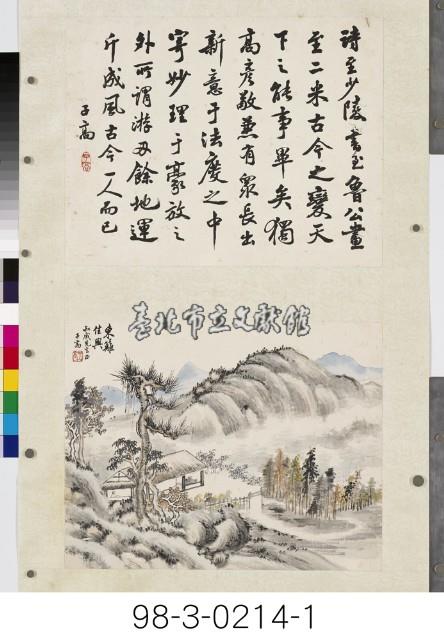 詩至少陵書至魯公畫
至二米古今之變天
下之能事畢矣獨
高彥敬兼有眾長出
新意于法度之中
寄妙理于豪放之
外所謂游刃餘地運
斤成風古今一人而已
子高
臺北市立文獻館
東籬
佳興
子高
98-3-0214-1